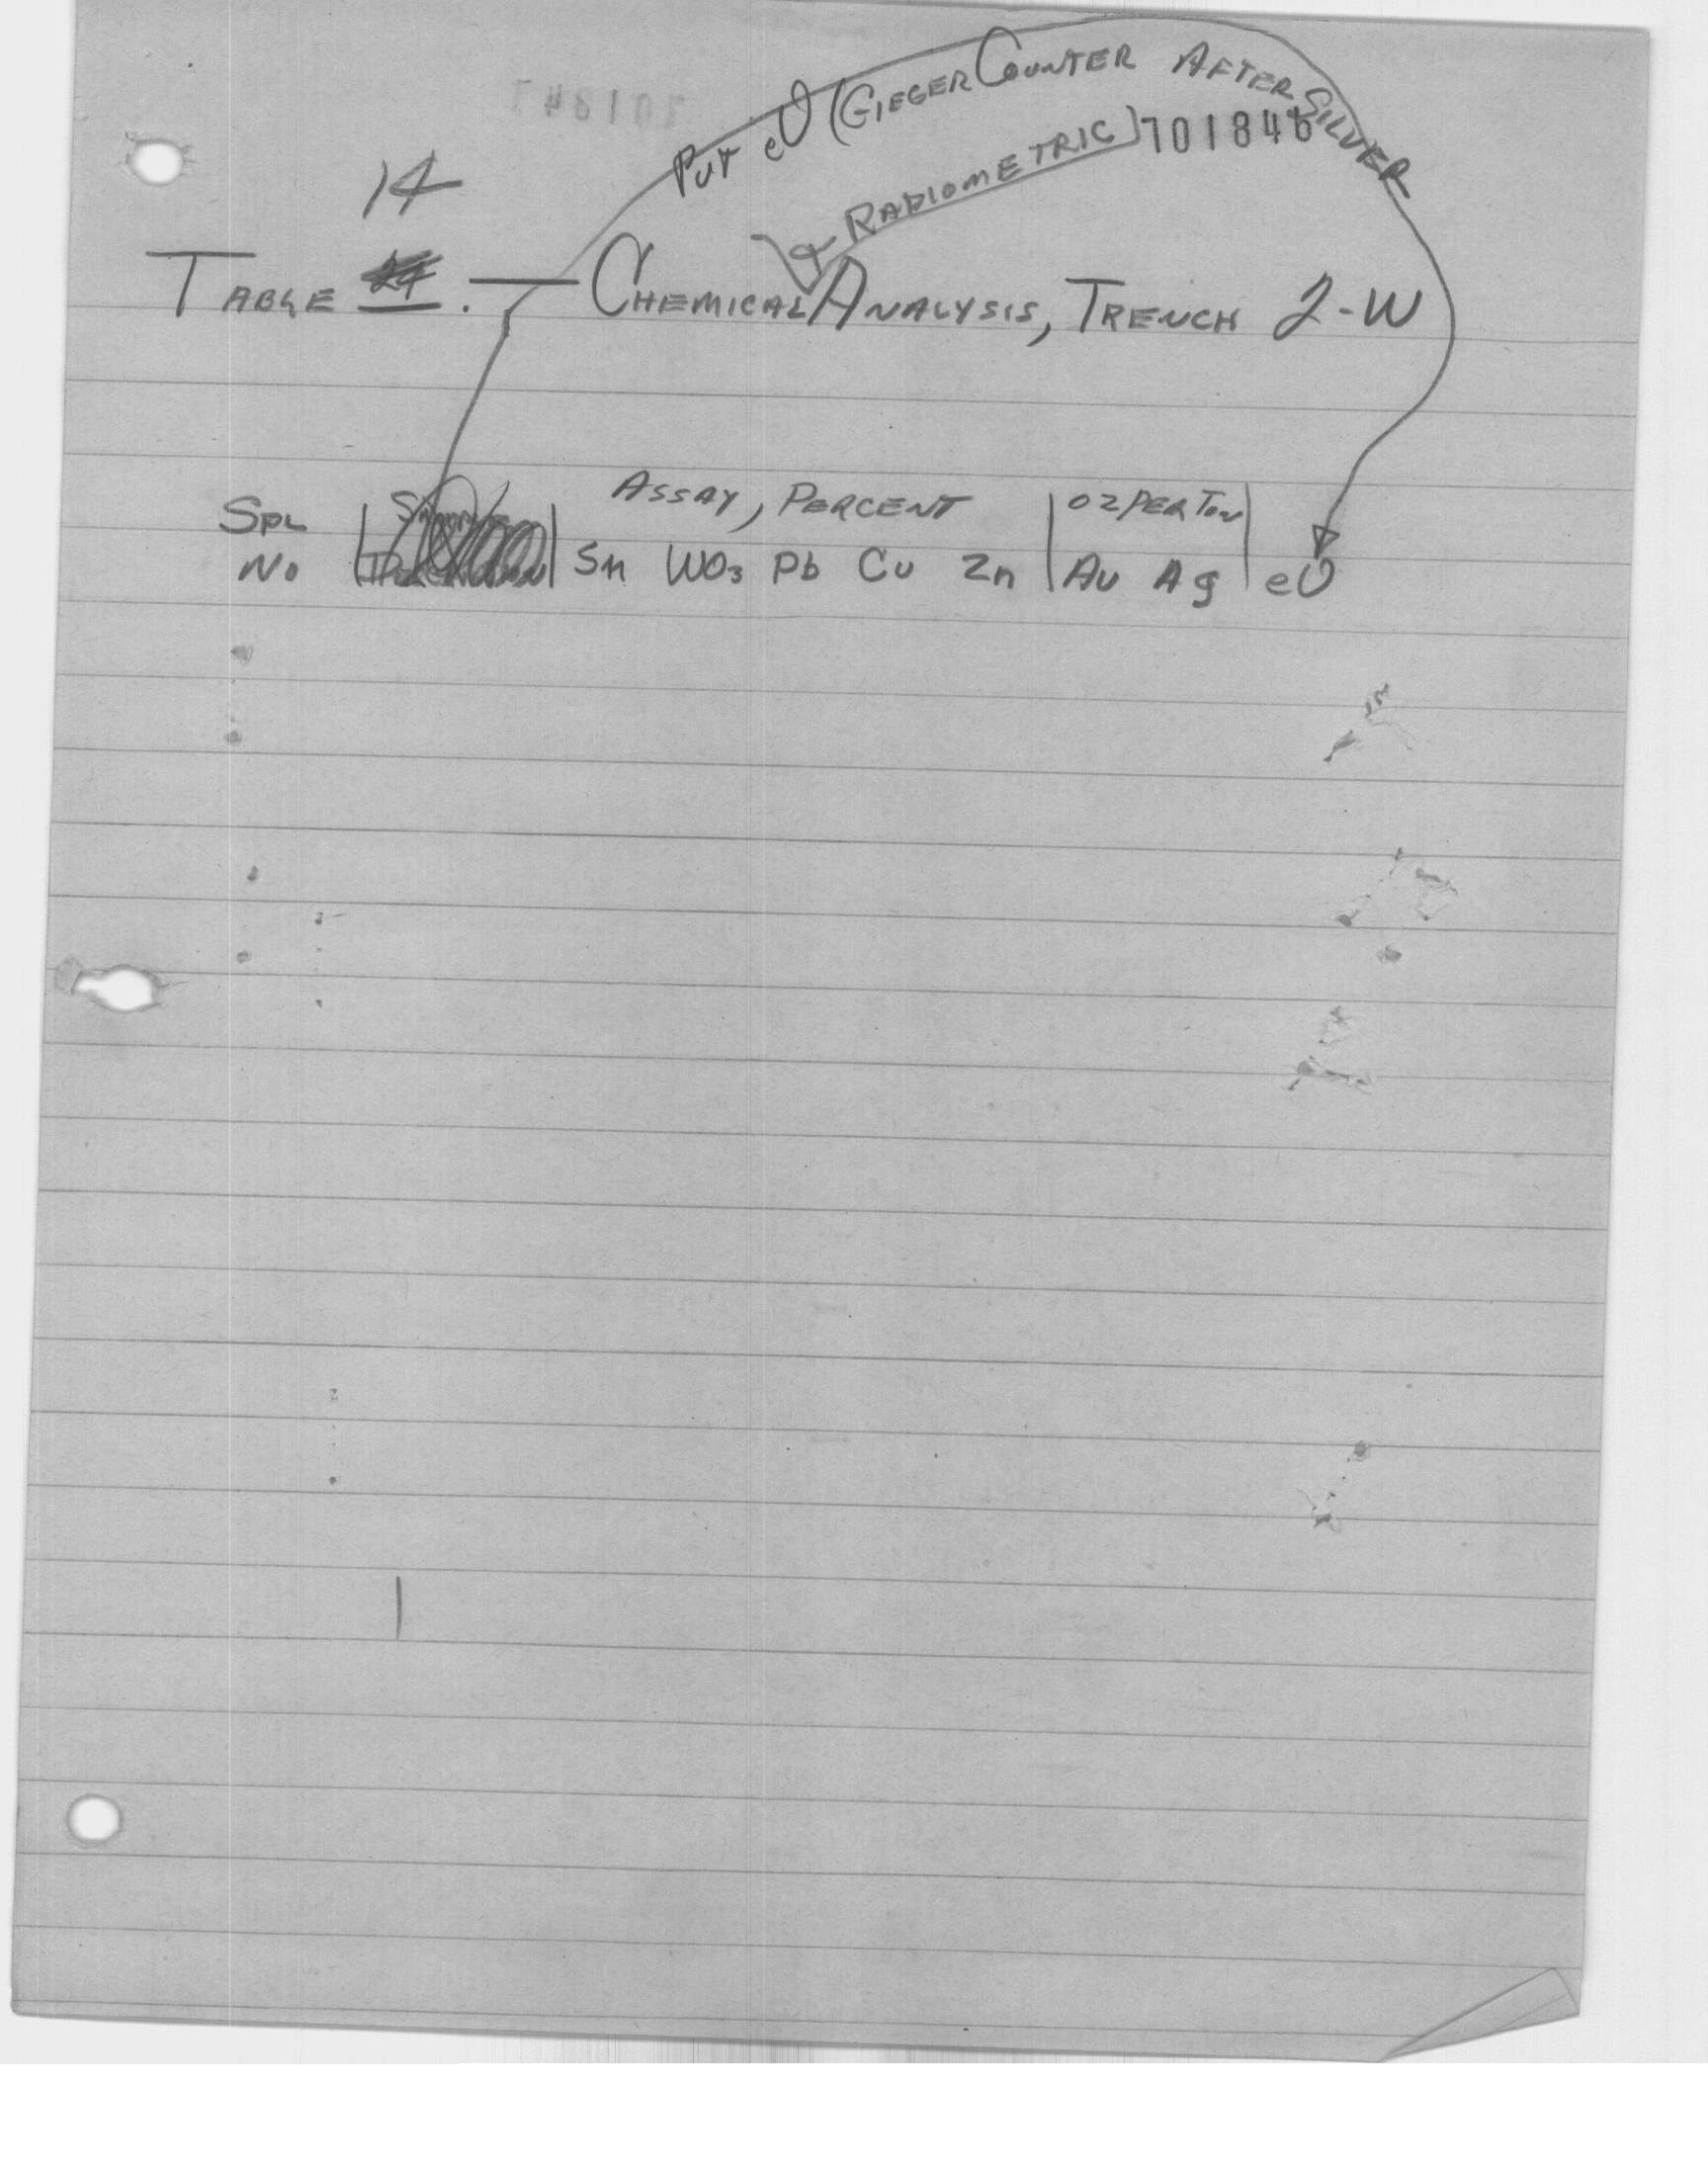 Put eU (GIEGER COUNTER AFTER SILVER
701846
14
& RADIOMETRIC
TABLE . — CHEMICAL ANALYSIS, TRENCH 2-W
ASSAY, PERCENT | OZ PER TON |
SPL
No | | Sn WO₃ Pb Cu Zn | Au Ag | eU